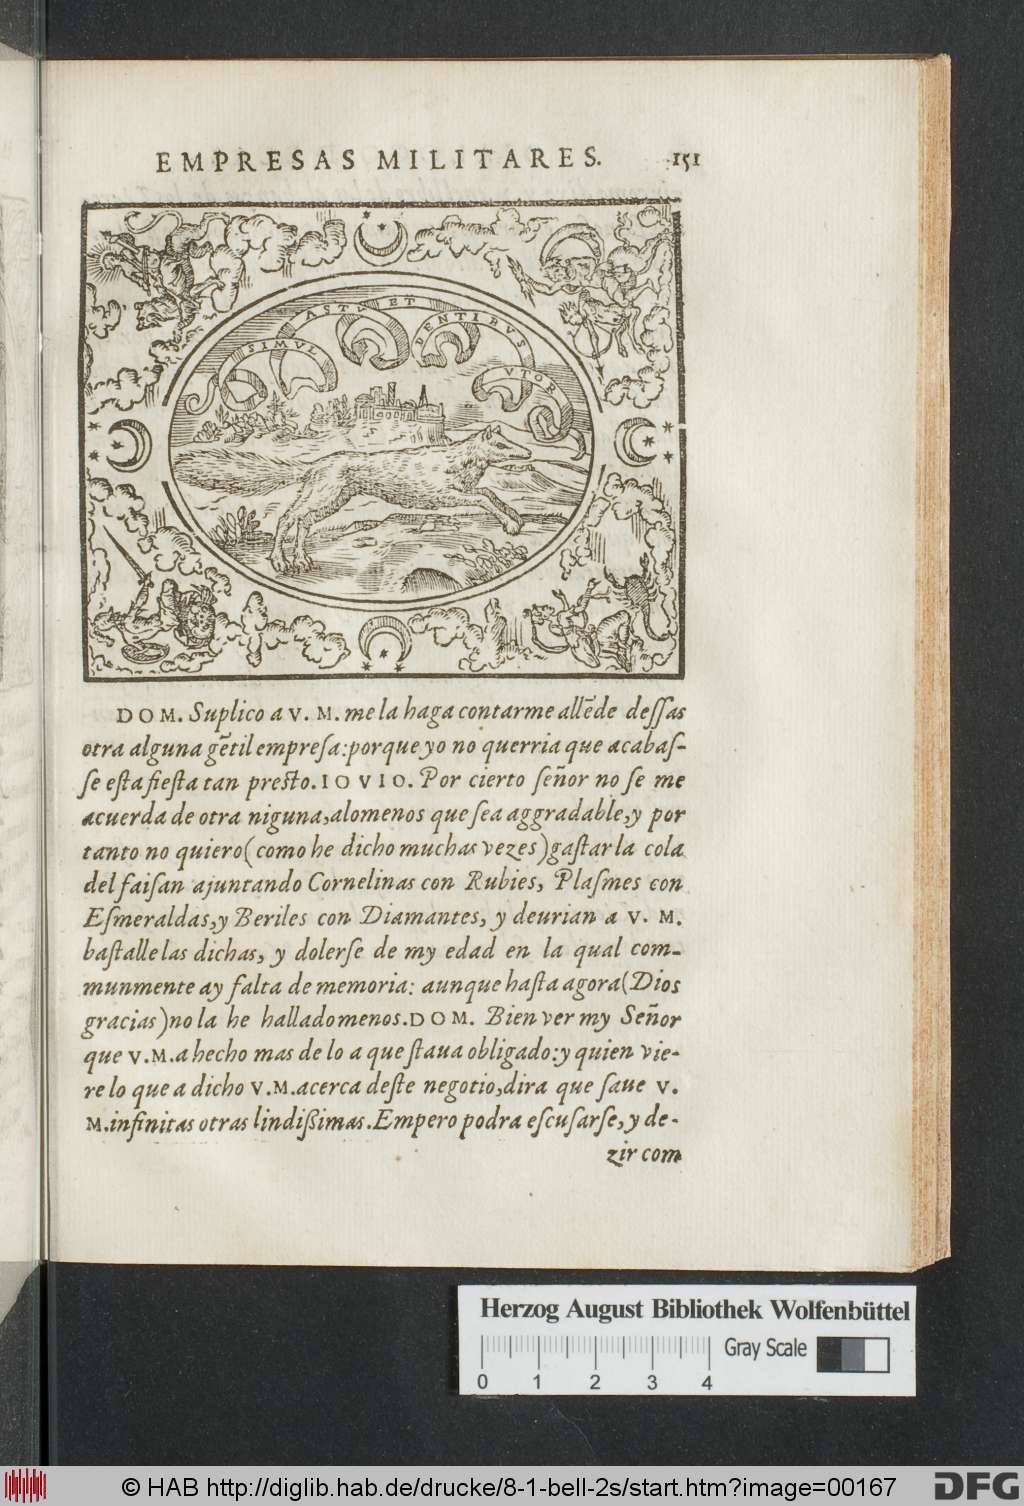 EMPRESAS MILITARES. 151
SIMVL ASTV ET DENTIBVS VTOR
DOM. Suplico a V. M. me la haga contarme allẽde dessas
otra alguna gẽtil empresa: porque yo no querria que acabas-
se esta fiesta tan presto. IOVIO. Por cierto señor no se me
acuerda de otra niguna, alomenos que sea aggradable, y por
tanto no quiero (como he dicho muchas vezes) gastar la cola
del faisan ajuntando Cornelinas con Rubies, Plasmes con
Esmeraldas, y Beriles con Diamantes, y deurian a V. M.
bastalle las dichas, y dolerse de my edad en la qual com-
munmente ay falta de memoria: aunque hasta agora (Dios
gracias) no la he hallado menos. DOM. Bien ver my Señor
que V. M. a hecho mas de lo a que staua obligado: y quien vie-
re lo que a dicho V. M. acerca deste negotio, dira que saue V.
M. infinitas otras lindißimas. Empero podra escusarse, y de-
zir com
Herzog August Bibliothek Wolfenbüttel
Gray Scale
0 1 2 3 4
© HAB http://diglib.hab.de/drucke/8-1-bell-2s/start.htm?image=00167
DFG